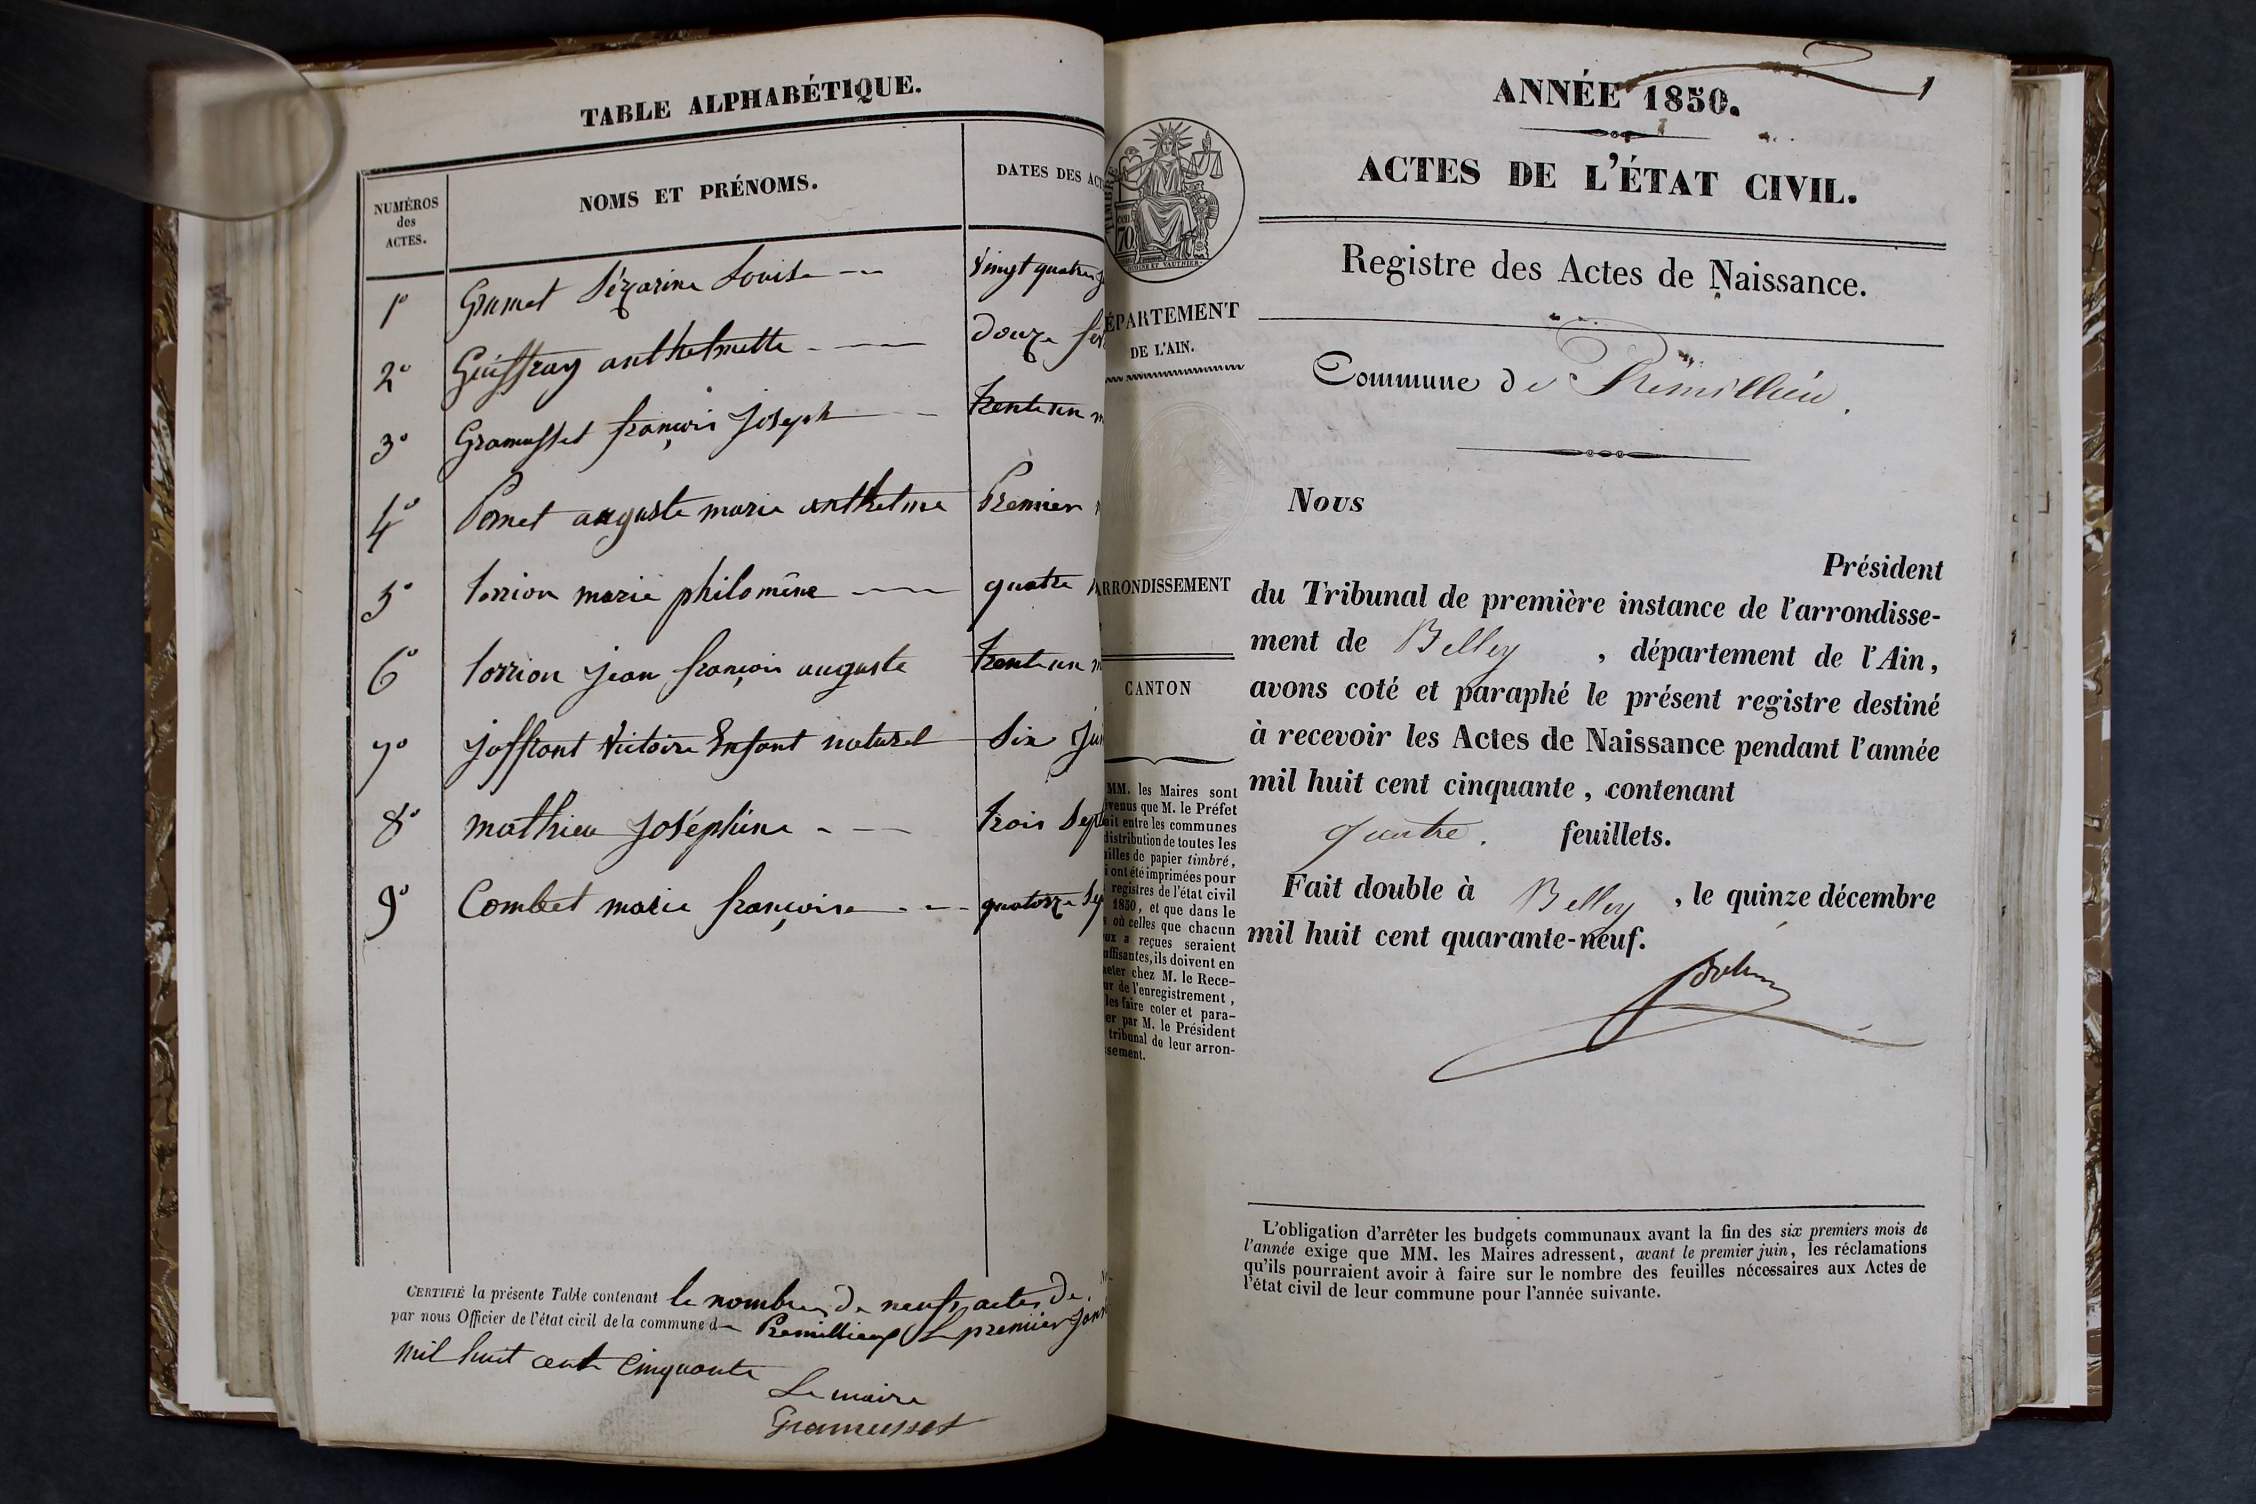 TABLE ALPHABÉTIQUE.
NUMÉROS
des
ACTES.
NOMS ET PRÉNOMS.
DATES DES ACT
1° Grumet Sézarine Louise Vingt quatre
2° Guiffray anthelmette douze fév
3° Gramusset françois Joseph trente un m
4° Pernet auguste marie anthelme Premier
5° torrion marie philomène quatre
6° torrion jean françois auguste trente un m
7° joffront Victoire Enfant naturel Six Jui
8° mathieu joséphine trois Sept
9° Combet marie françoise quatorze Sep
CERTIFIÉ la présente Table contenant le nombre de neufs actes de
par nous Officier de l'état civil de la commune de Premillieux le premier Janv
mil huit cent cinquante
Le maire
Gramusset
1
ANNÉE 1850.
ACTES DE L'ÉTAT CIVIL.
Registre des Actes de Naissance.
TIMBRE
70
ÉPARTEMENT
DE L'AIN.
Commune de Prémillieu.
Nous
Président
du Tribunal de première instance de l'arrondisse-
ment de Belley , département de l'Ain,
avons coté et paraphé le présent registre destiné
à recevoir les Actes de Naissance pendant l'année
mil huit cent cinquante, contenant
quatre. feuillets.
Fait double à Belley , le quinze décembre
mil huit cent quarante-neuf.
RRONDISSEMENT
CANTON
MM. les Maires sont
venus que M. le Préfet
ait entre les communes
distribution de toutes les
illes de papier timbré,
i ont été imprimées pour
registres de l'état civil
1850, et que dans le
où celles que chacun
ux a reçues seraient
uffisantes, ils doivent en
heter chez M. le Rece-
ur de l'enregistrement,
les faire coter et para-
er par M. le Président
tribunal de leur arron-
ssement.
L'obligation d'arrêter les budgets communaux avant la fin des six premiers mois de
l'année exige que MM. les Maires adressent, avant le premier juin, les réclamations
qu'ils pourraient avoir à faire sur le nombre des feuilles nécessaires aux Actes de
l'état civil de leur commune pour l'année suivante.